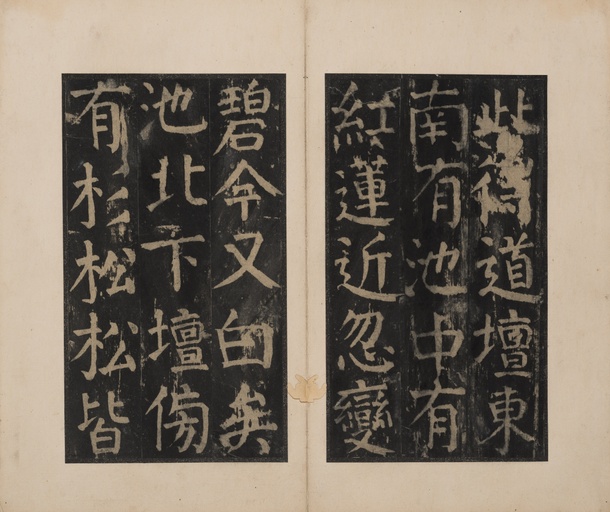 此得道壇東
南有池中有
紅蓮近忽變
碧今又白矣
池北下壇傍
有杉松松皆